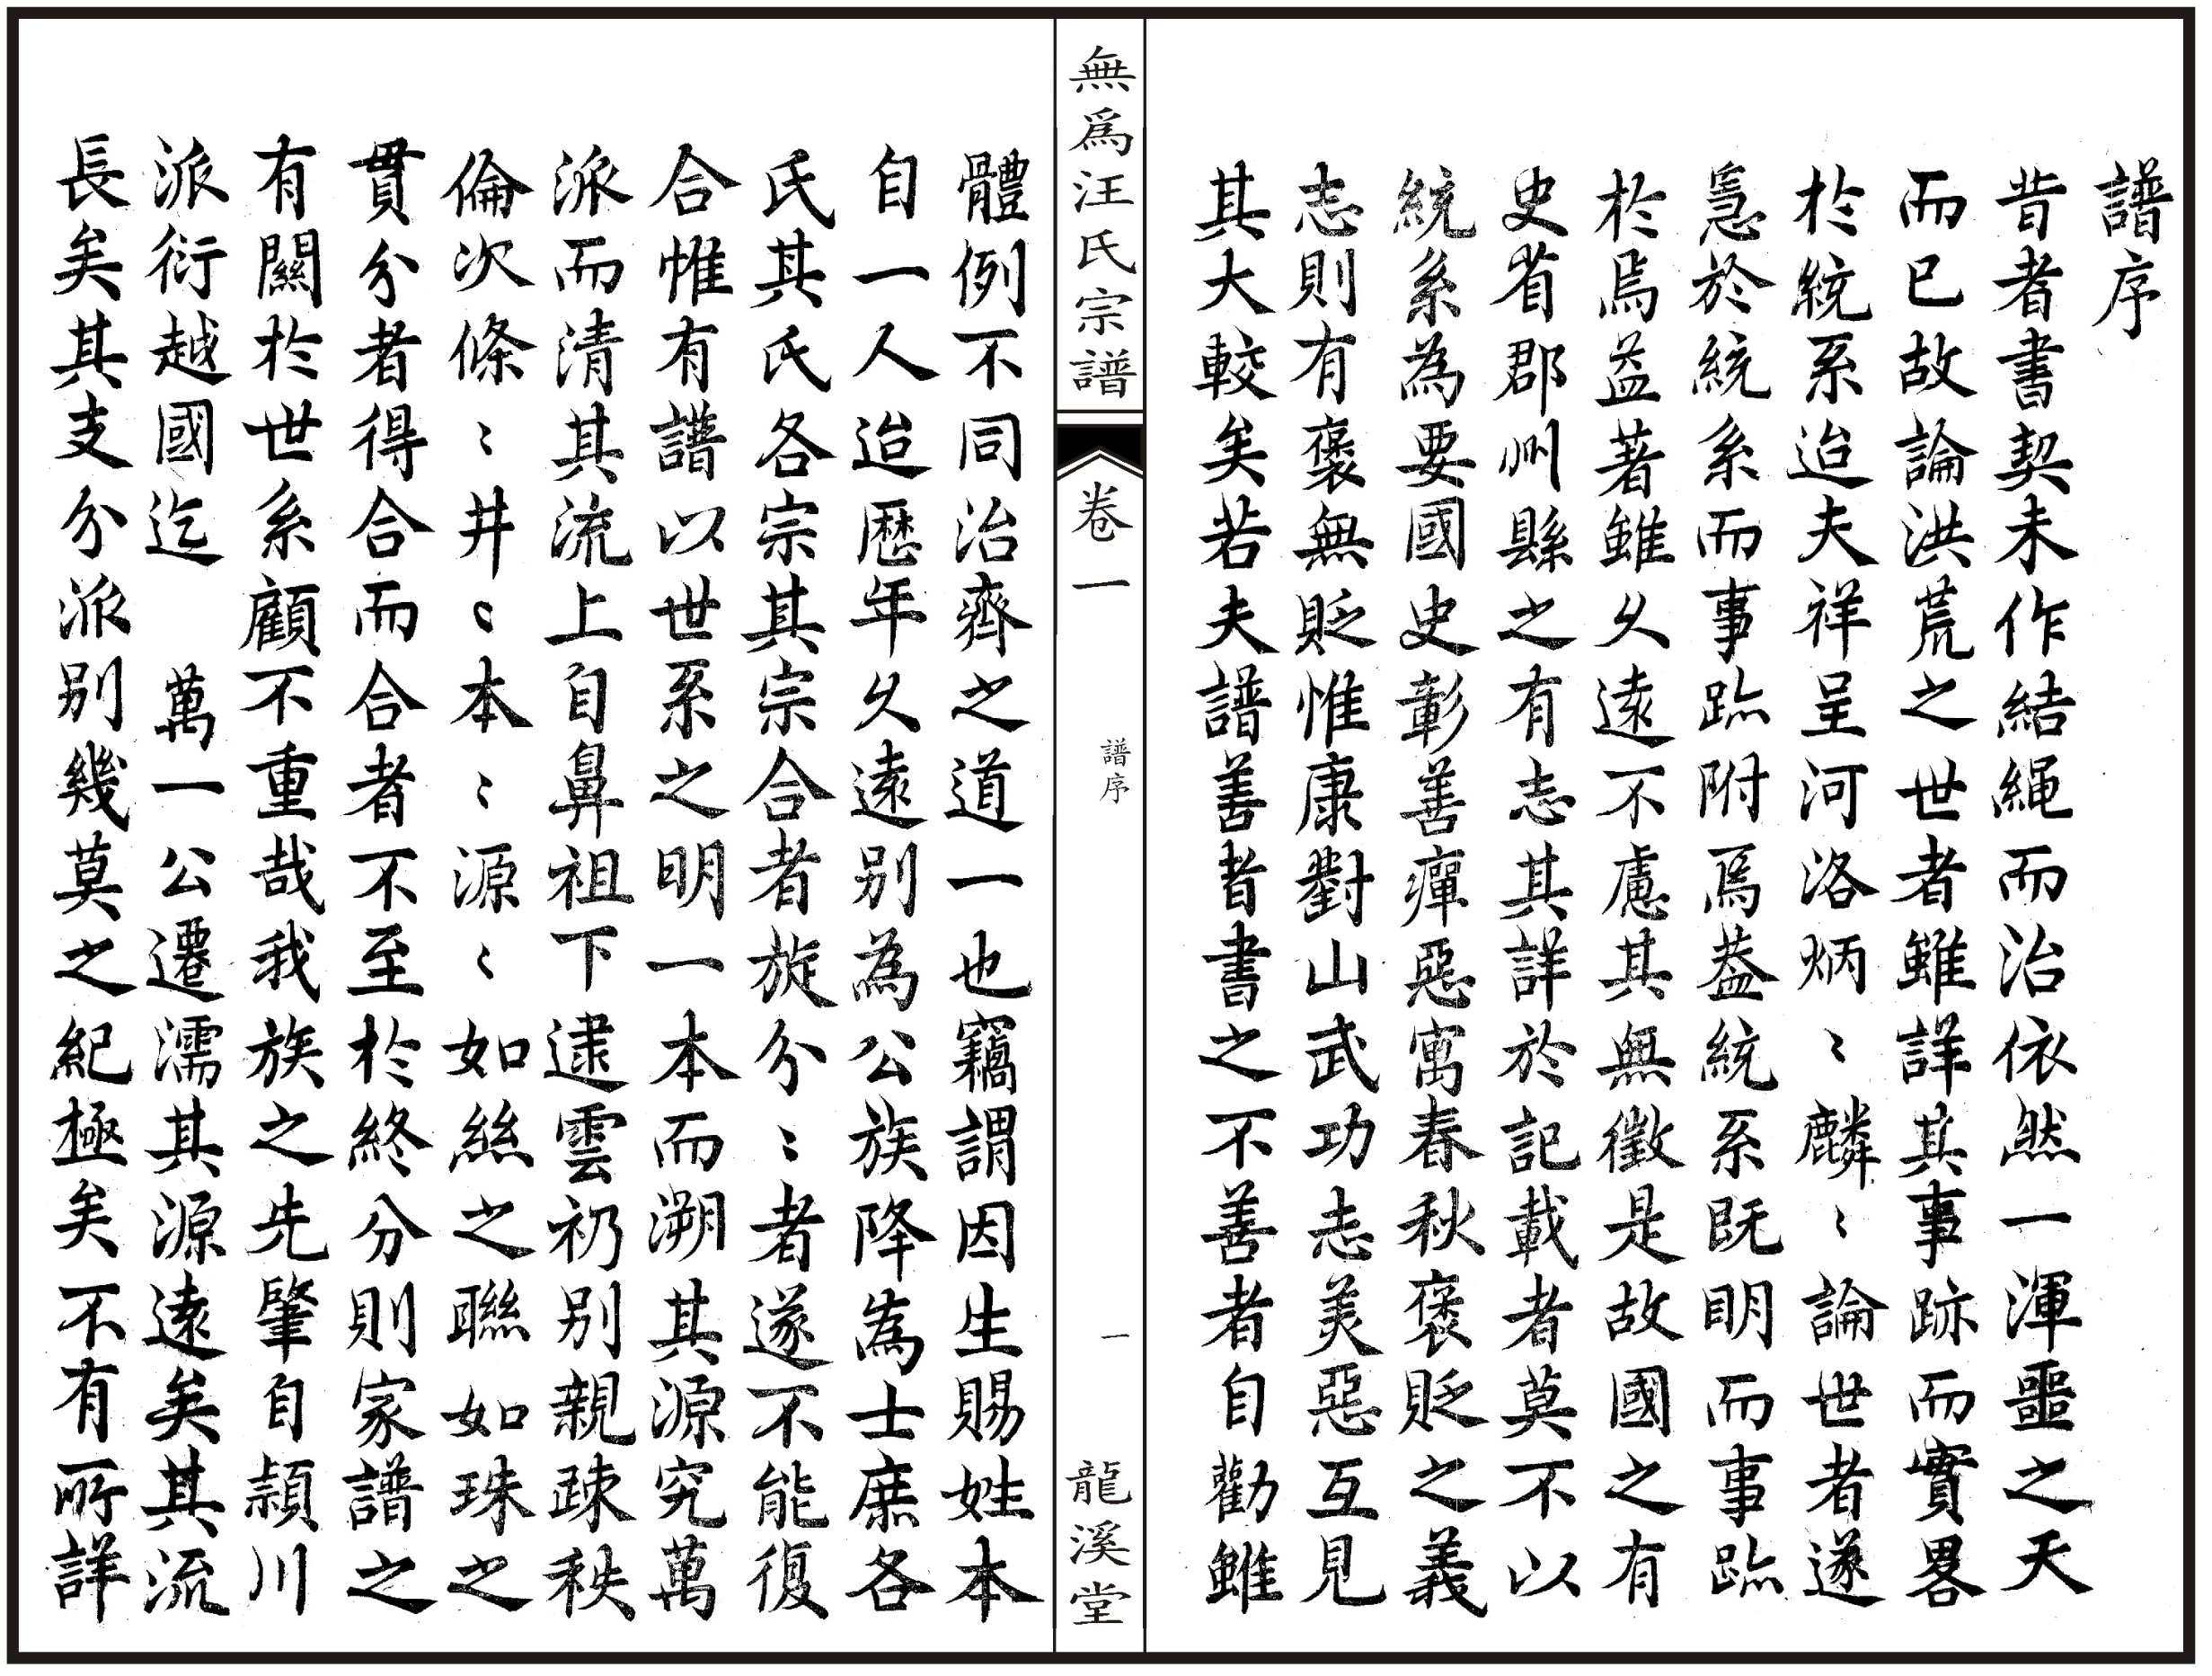 譜序
昔者書契未作結繩而治依然一渾噩之天
而已故論洪荒之世者雖詳其事跡而實畧
於統系迨夫祥呈河洛炳〻麟〻論世者遂
急於統系而事跡附焉葢統系既明而事跡
於焉益著雖久遠不慮其無徵是故國之有
史省郡州縣之有志其詳於記載者莫不以
統系為要國史彰善癉惡寓春秋褒貶之義
志則有褒無貶惟康對山武功志美惡互見
其大較矣若夫譜善者書之不善者自勸雖
無爲汪氏宗譜
卷一
譜序
一
龍溪堂
體例不同治齊之道一也竊謂因生賜姓本
自一人迨歷年久遠別為公族降為士庶各
氏其氏各宗其宗合者旋分〻者遂不能復
合惟有譜以世系之明一本而溯其源究萬
派而清其流上自鼻祖下逮雲礽别親疎秩
倫次條〻井〻本〻源〻如絲之聯如珠之
貫分者得合而合者不至於終分則家譜之
有關於世系顧不重哉我族之先肇自潁川
派衍越國迄 萬一公遷濡其源遠矣其流
長矣其支分派别幾莫之紀極矣不有所詳